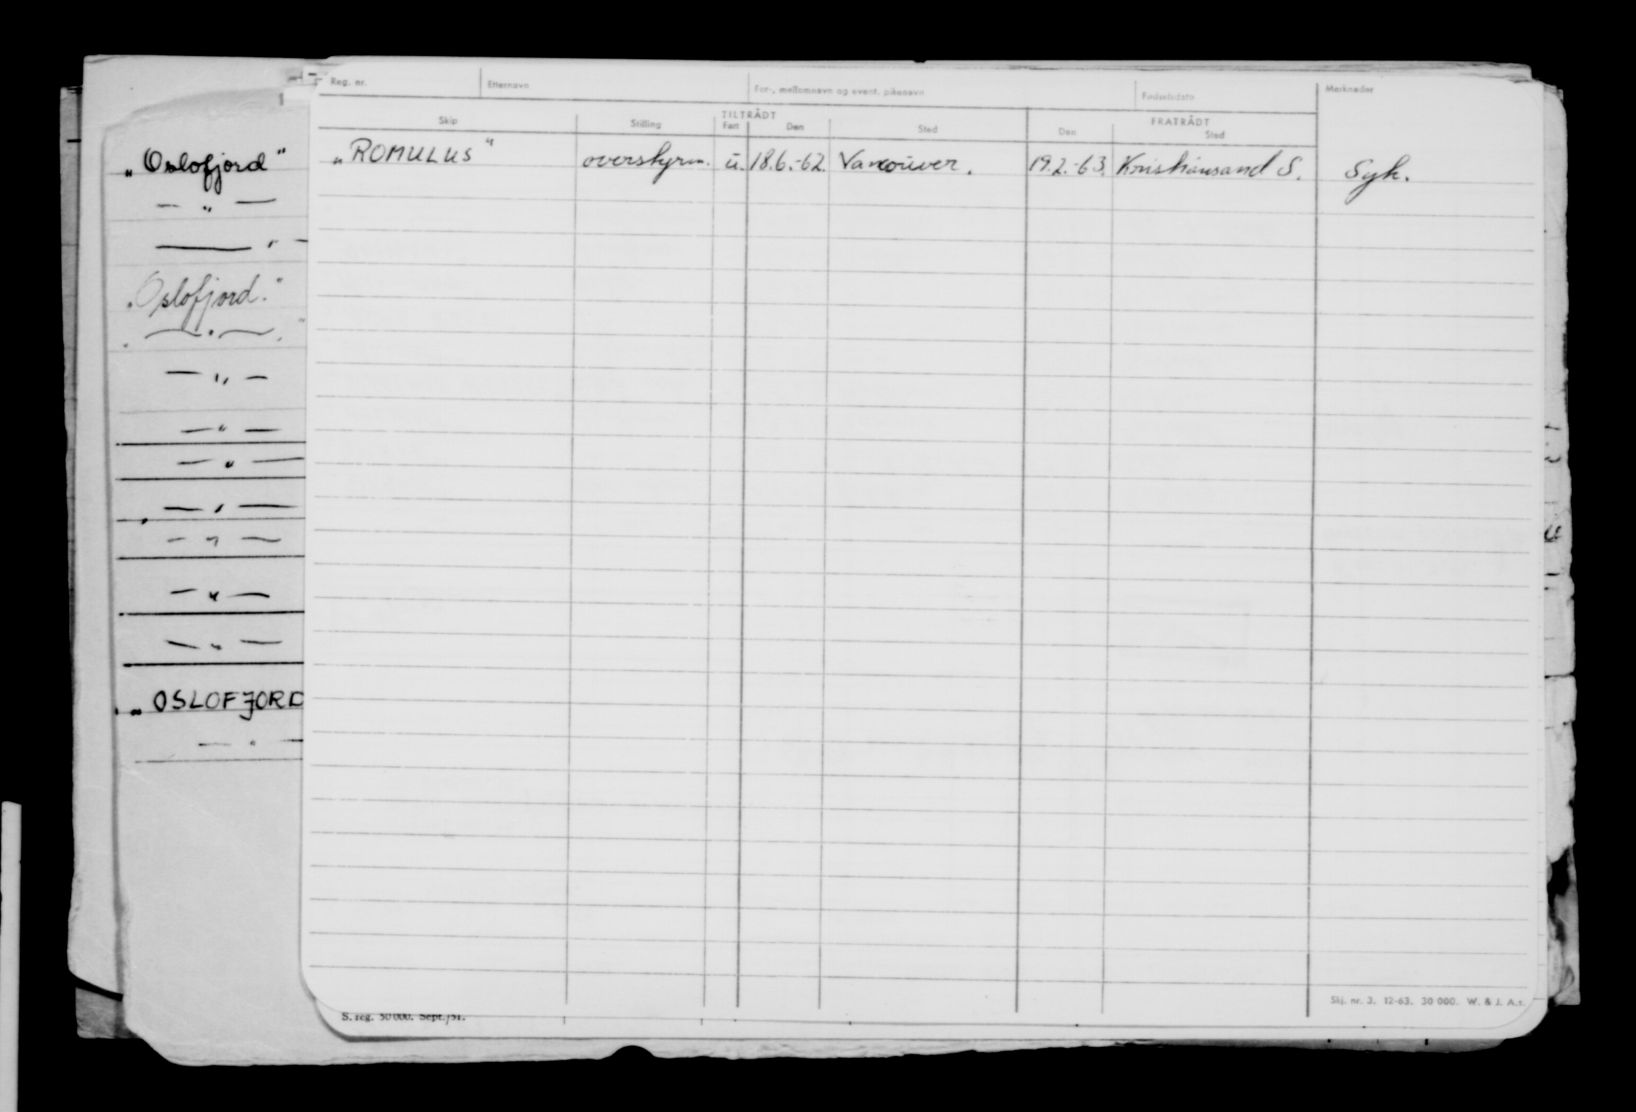 Reg. nr. Etternavn For-, mellomnavn og event. pikenavn Fødselsdato Merknader
TILTRÅDT FRATRÅDT
Skip Stilling Fart Den Sted Den Sted
„ROMULUS" overstyrm. u. 18.6.-62. Vancouver. 19.2.-63. Kristiansand S. Syk.
„Oslofjord"
— „ —
— " —
„Oslofjord."
— " —
— „ —
— " —
— " —
— " —
— " —
— " —
— " —
„OSLOFJORD
— " —
Skj. nr. 3. 12-63. 30 000. W. & J. A.s.
S. reg. 50 000. Sept./51.